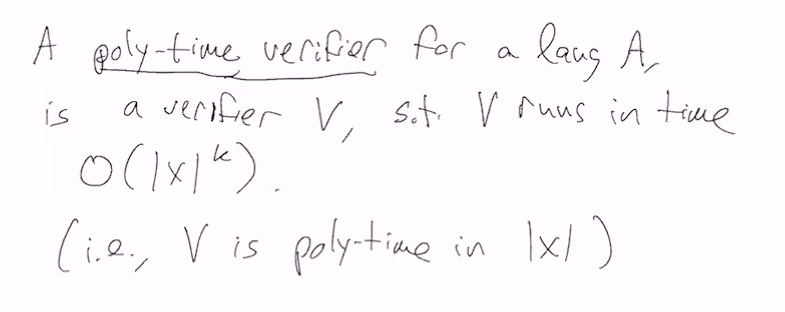 A poly-time verifier for a lang A,
is a verifier V, s.t. V runs in time
O(|x|^k).
(i.e., V is poly-time in |x|)